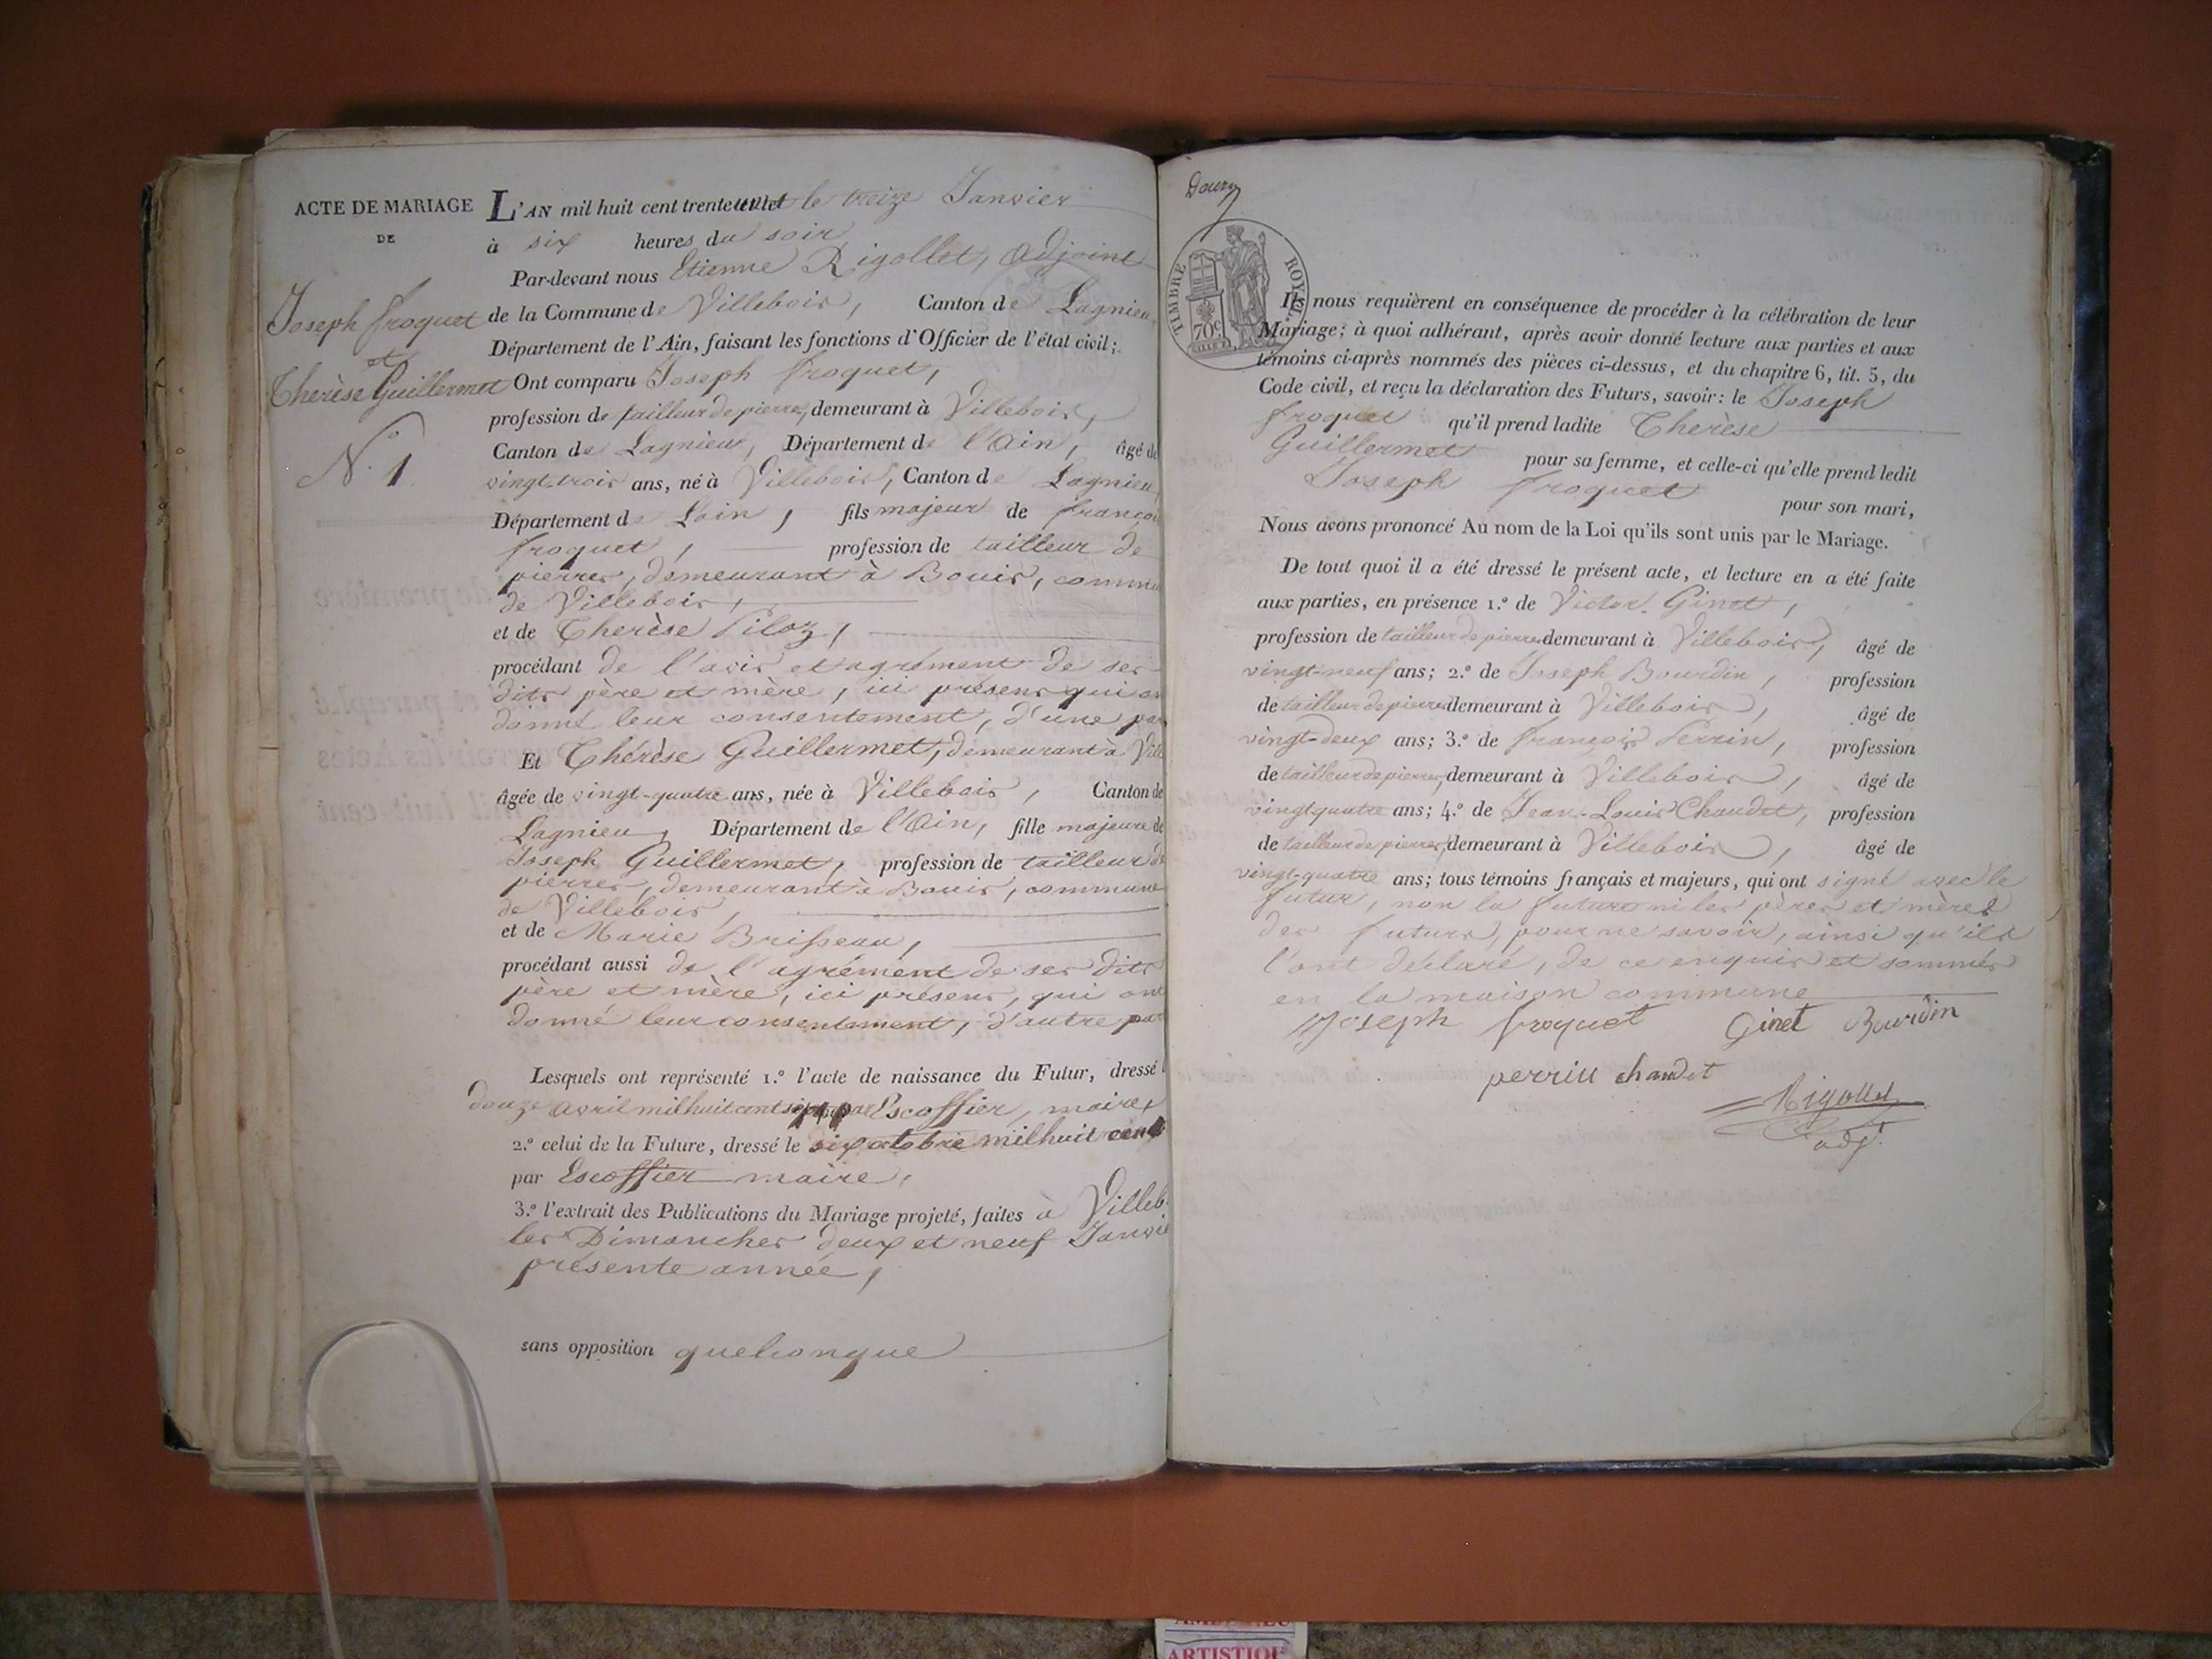 ACTE DE MARIAGE
DE
Joseph froquet
et
Therèse Guillermet
N.º 1
L'AN mil huit cent trente et le treize Janvier
à six heures du soir
Par-devant nous Etienne Rigollet, adjoint
de la Commune de Villebois, Canton de Lagnieu,
Département de l'Ain, faisant les fonctions d'Officier de l'état civil;
Ont comparu Joseph froquet,
profession de tailleur de pierres, demeurant à Villebois,
Canton de Lagnieu, Département de l'Ain, âgé de
vingt-trois ans, né à Villebois, Canton de Lagnieu,
Département de Lain, fils majeur de françois
froquet, profession de tailleur de
pierres, demeurant à Bouis, commu
de Villebois,
et de Therèse Piloz,
procédant de l'avis et agrément de ses
dits père et mère, ici présens qui on
donné leur consentement, d'une par
Et Thérèse Guillermet, demeurant à Ville
âgée de vingt-quatre ans, née à Villebois, Canton de
Lagnieu, Département de l'Ain, fille majeure de
Joseph Guillermet, profession de tailleur de
pierres, demeurant à Bouis, commune
de Villebois,
et de Marie Brisseau,
procédant aussi de l'agrément de ses dits
père et mère, ici présens, qui ont
donné leur consentement, d'autre par
Lesquels ont représenté 1.º l'acte de naissance du Futur, dressé l
douze avril mil huit cent sept par Escoffier, maire,
2.º celui de la Future, dressé le six octobre mil huit cent
par Escoffier maire,
3.º l'extrait des Publications du Mariage projeté, faites à Villeb
les Dimanches deux et neuf Janvie
présente année,
sans opposition quelconque
TIMBRE ROYAL
70c
Ils nous requièrent en conséquence de procéder à la célébration de leur
Mariage; à quoi adhérant, après avoir donné lecture aux parties et aux
témoins ci-après nommés des pièces ci-dessus, et du chapitre 6, tit. 5, du
Code civil, et reçu la déclaration des Futurs, savoir: le Joseph
froquet qu'il prend ladite Therèse
Guillermet pour sa femme, et celle-ci qu'elle prend ledit
Joseph froquet pour son mari,
Nous avons prononcé Au nom de la Loi qu'ils sont unis par le Mariage.
De tout quoi il a été dressé le présent acte, et lecture en a été faite
aux parties, en présence 1.º de Victor Ginet,
profession de tailleur de pierres demeurant à Villebois, âgé de
vingt-neuf ans; 2.º de Joseph Bourdin, profession
de tailleur de pierres demeurant à Villebois, âgé de
vingt-deux ans; 3.º de françois Perrin, profession
de tailleur de pierres, demeurant à Villebois, âgé de
vingt quatre ans; 4.º de Jean-Louis Chaudet, profession
de tailleur de pierres, demeurant à Villebois, âgé de
vingt-quatre ans; tous témoins français et majeurs, qui ont signé avec le
futur, non la future ni les pères et mères
des futurs, pour ne savoir, ainsi qu'ils
l'ont déclaré, de ce enquis et sommés
en la maison commune
Joseph froquet Ginet Bourdin
perrin chaudet
Rigollet
adj.t
ARTISTIQU